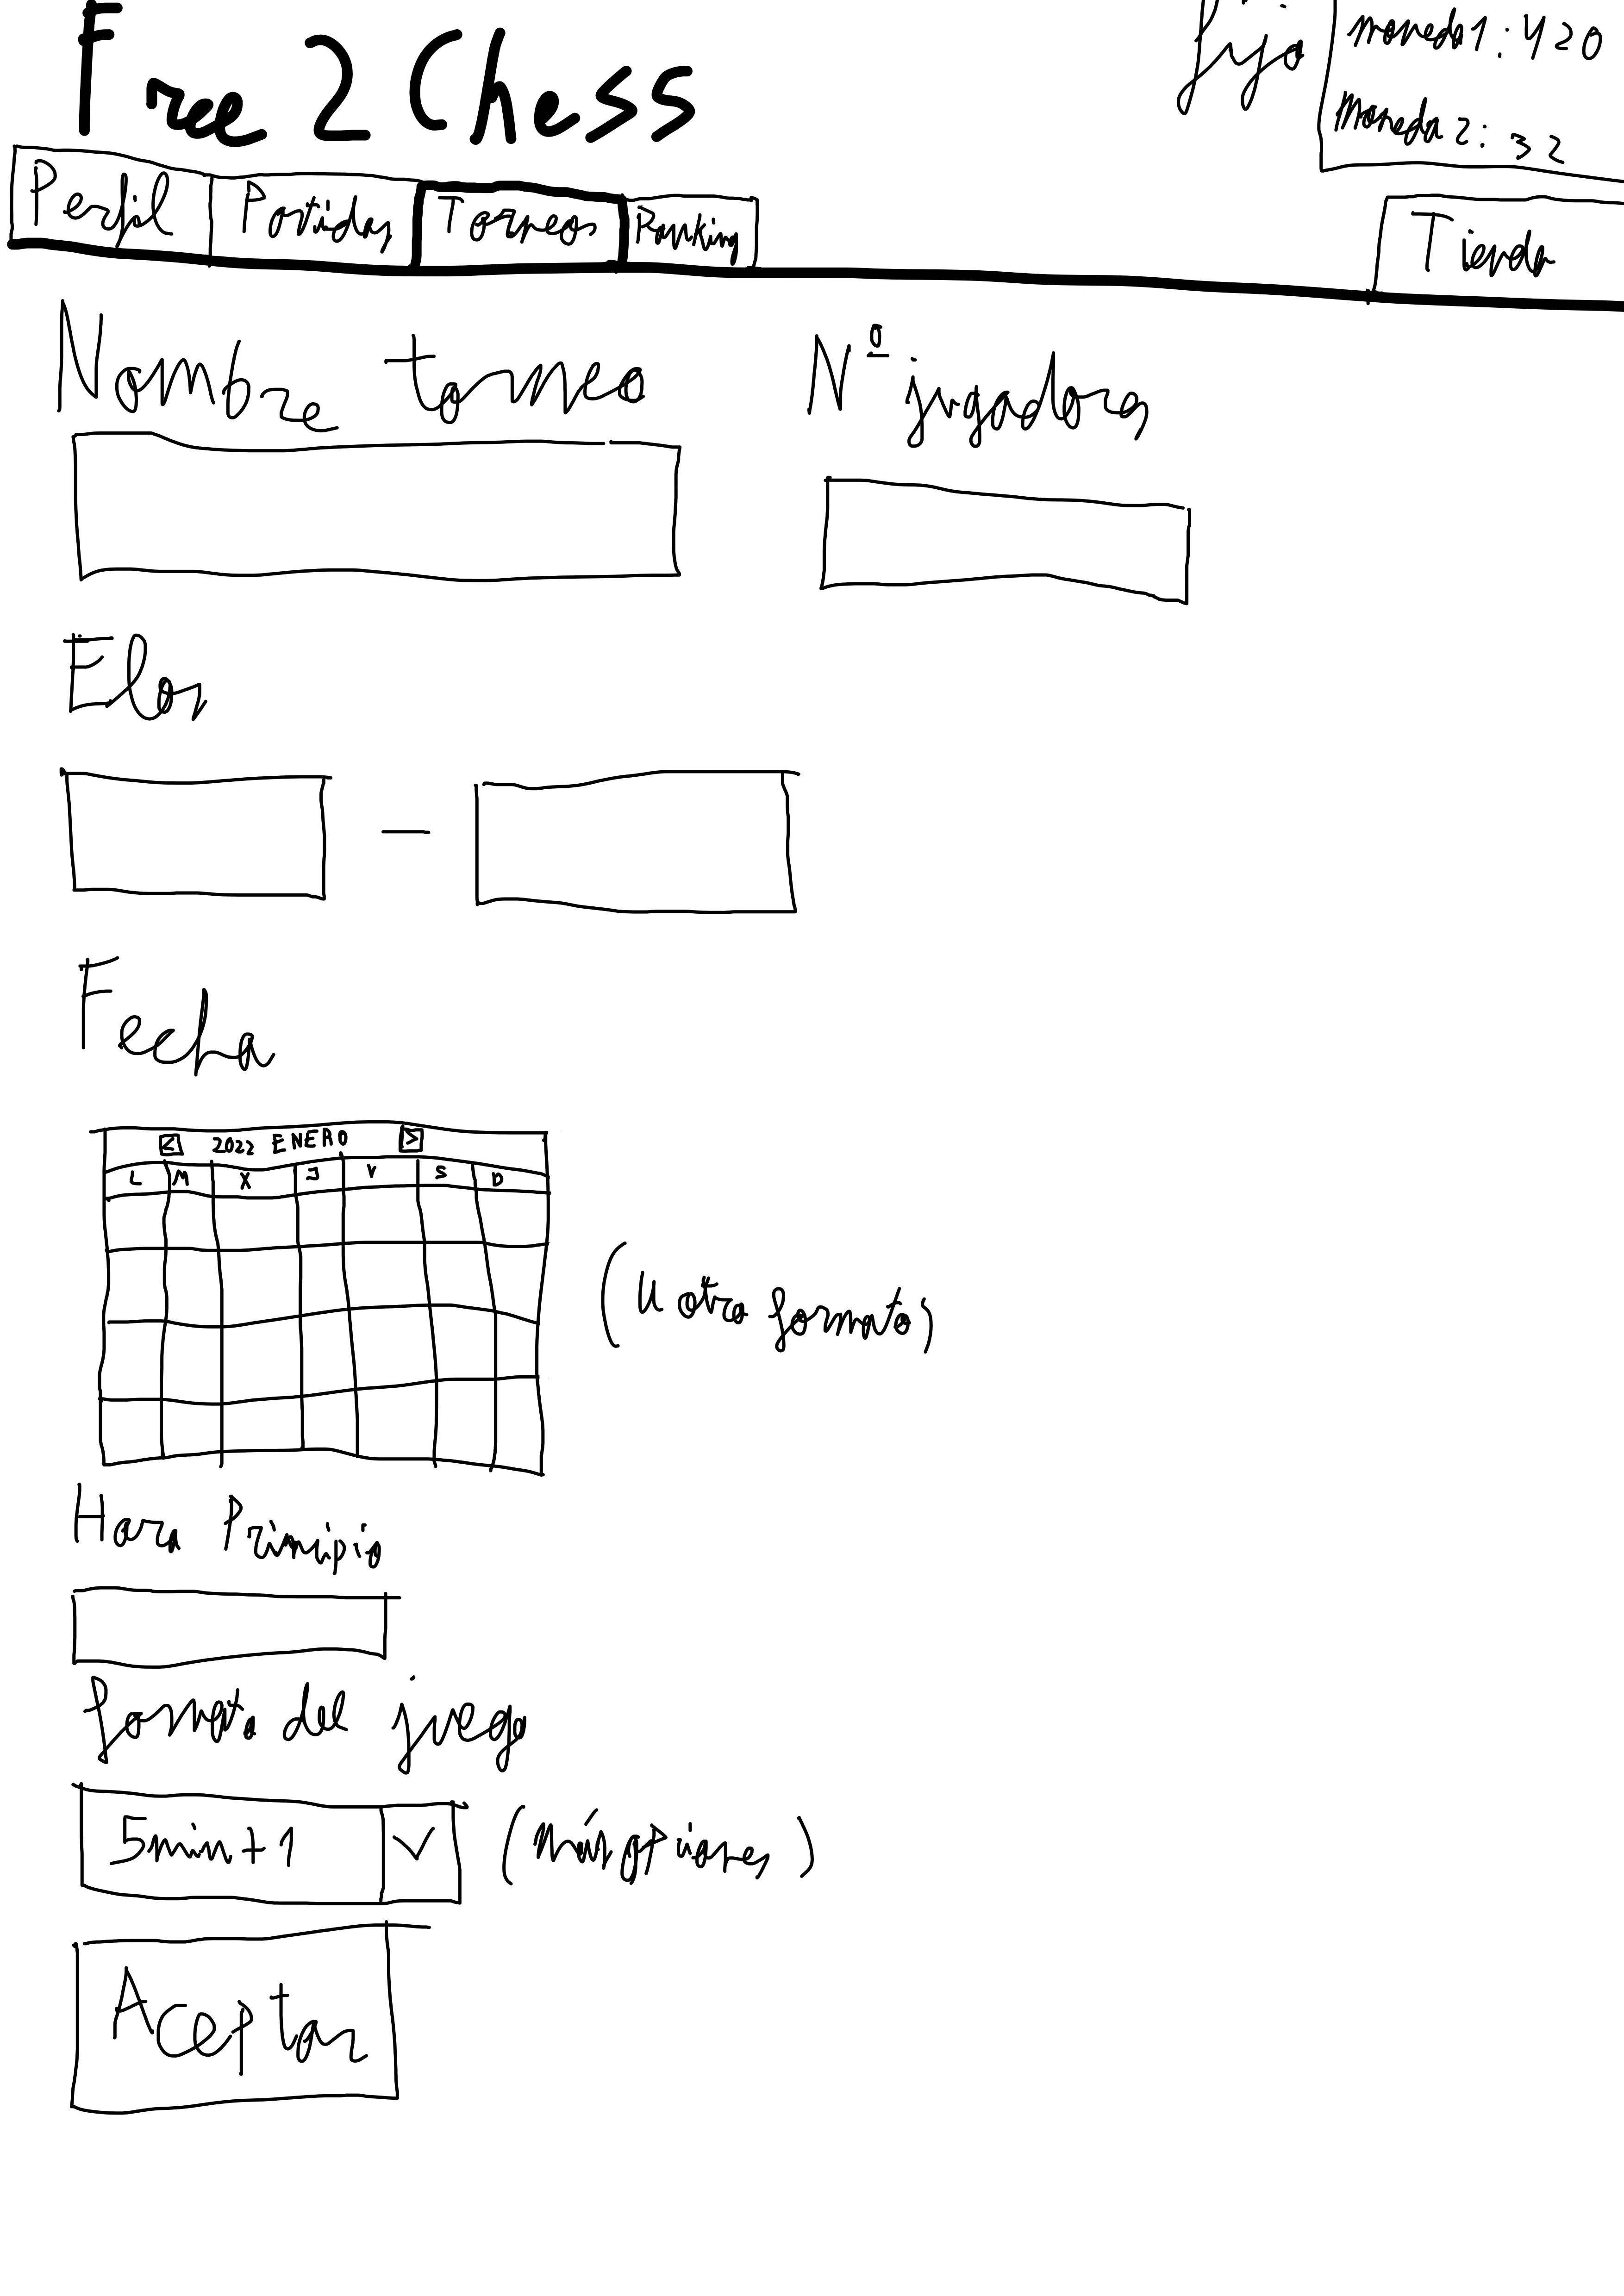 Free 2 Chess
fija
moneda 1: 420
moneda 2: 32
Perfil Partidas Torneos Ranking Tienda
Nombre torneo Nº jugadores
Elos
—
Fecha
< 2022 ENERO >
L M X J V S D
(u otro formato)
Hora Principio
formato del juego
5min+1
Aceptar